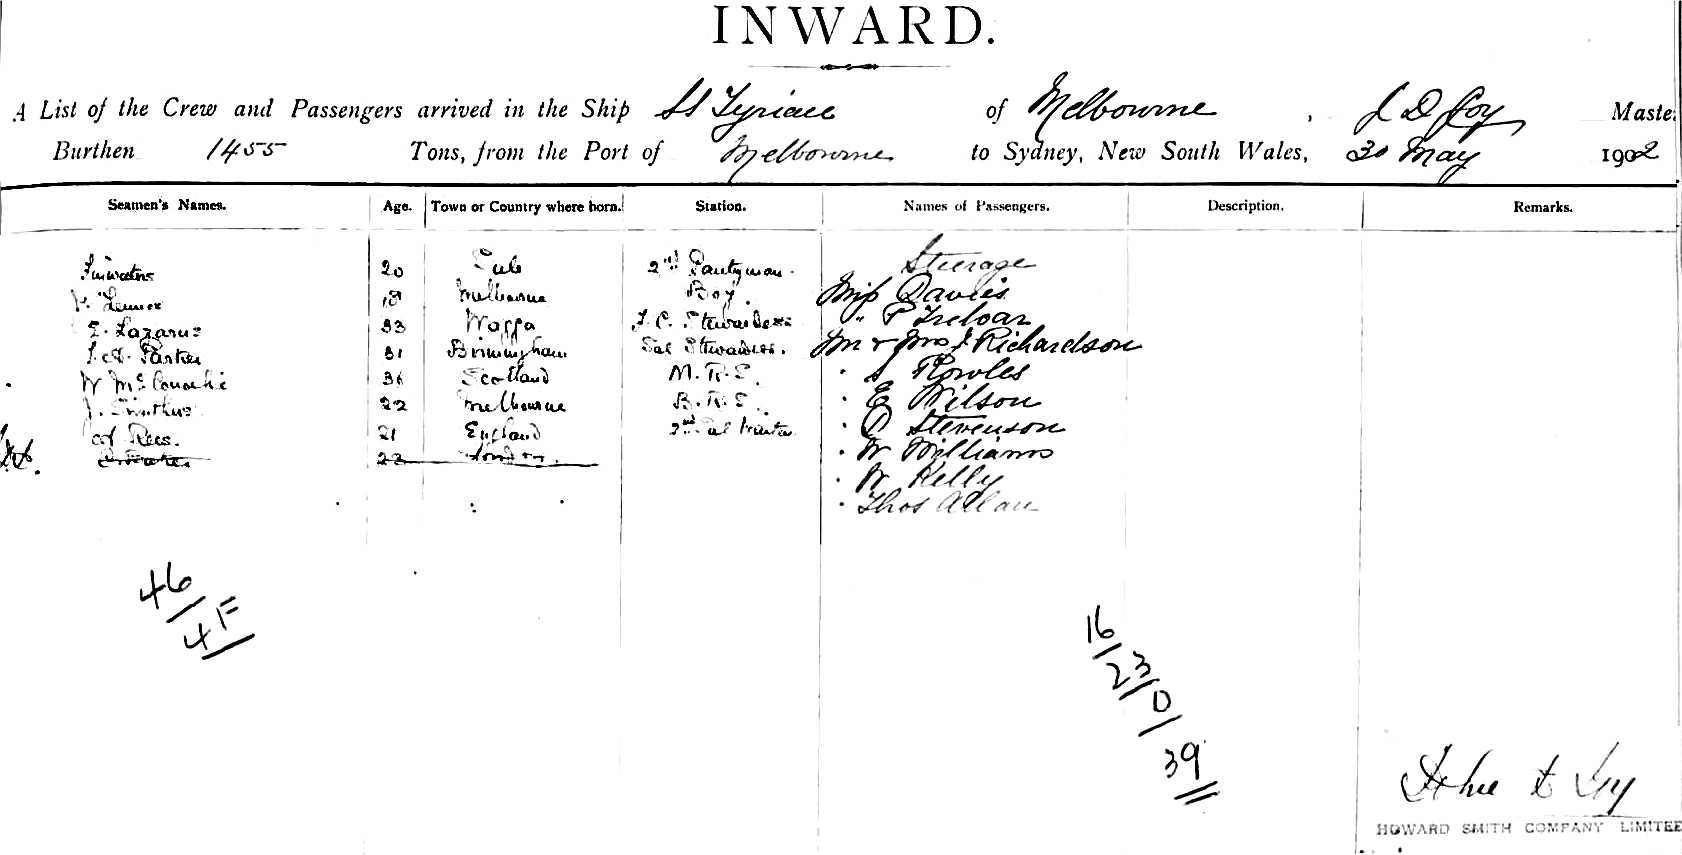 INWARD.
A List of the Crew and Passengers arrived in the Ship SS Tyrian of Melbourne, J D Joy Master
Burthen 1455 Tons, from the Port of Melbourne to Sydney, New South Wales, 30 May 1902
Seamen's Names. Age. Town or Country where born. Station. Names of Passengers. Description. Remarks.
20 2nd Pantryman. Steerage
Lennox 18 Melbourne Boy. Miss Davies
E. Lazarus 33 Wagga F. C. Stewardess " P Treloar
Parker 31 Birmingham Sal Stewardess. Mr & Mrs J Richardson
W McConachie 36 Scotland M. R. S. Rowles
J. Smithers 22 Melbourne B. R. S. " E Wilson
Rees. 21 England 2nd Sal Waiter " Stevenson
22 London. " W Williams
" W Kelly
" Thos Allan
46/4F
16/23/0/39
HOWARD SMITH COMPANY LIMITED